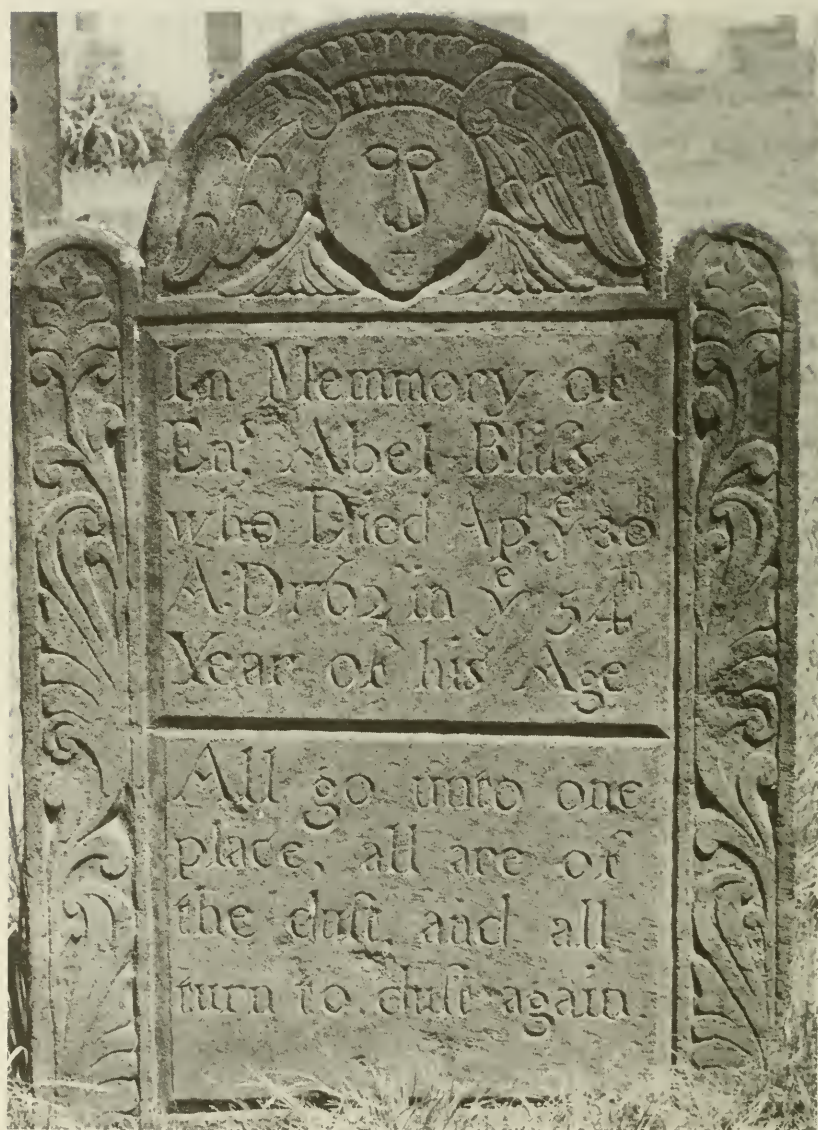 In Memmory of
Enſ. Abel Bliſs
who Died Apˡ. yᵉ 30ᵗʰ
A:D 1762 in yᵉ 54ᵗʰ
Year of his Age
All go unto one
place, all are of
the duſt, and all
turn to duſt again.